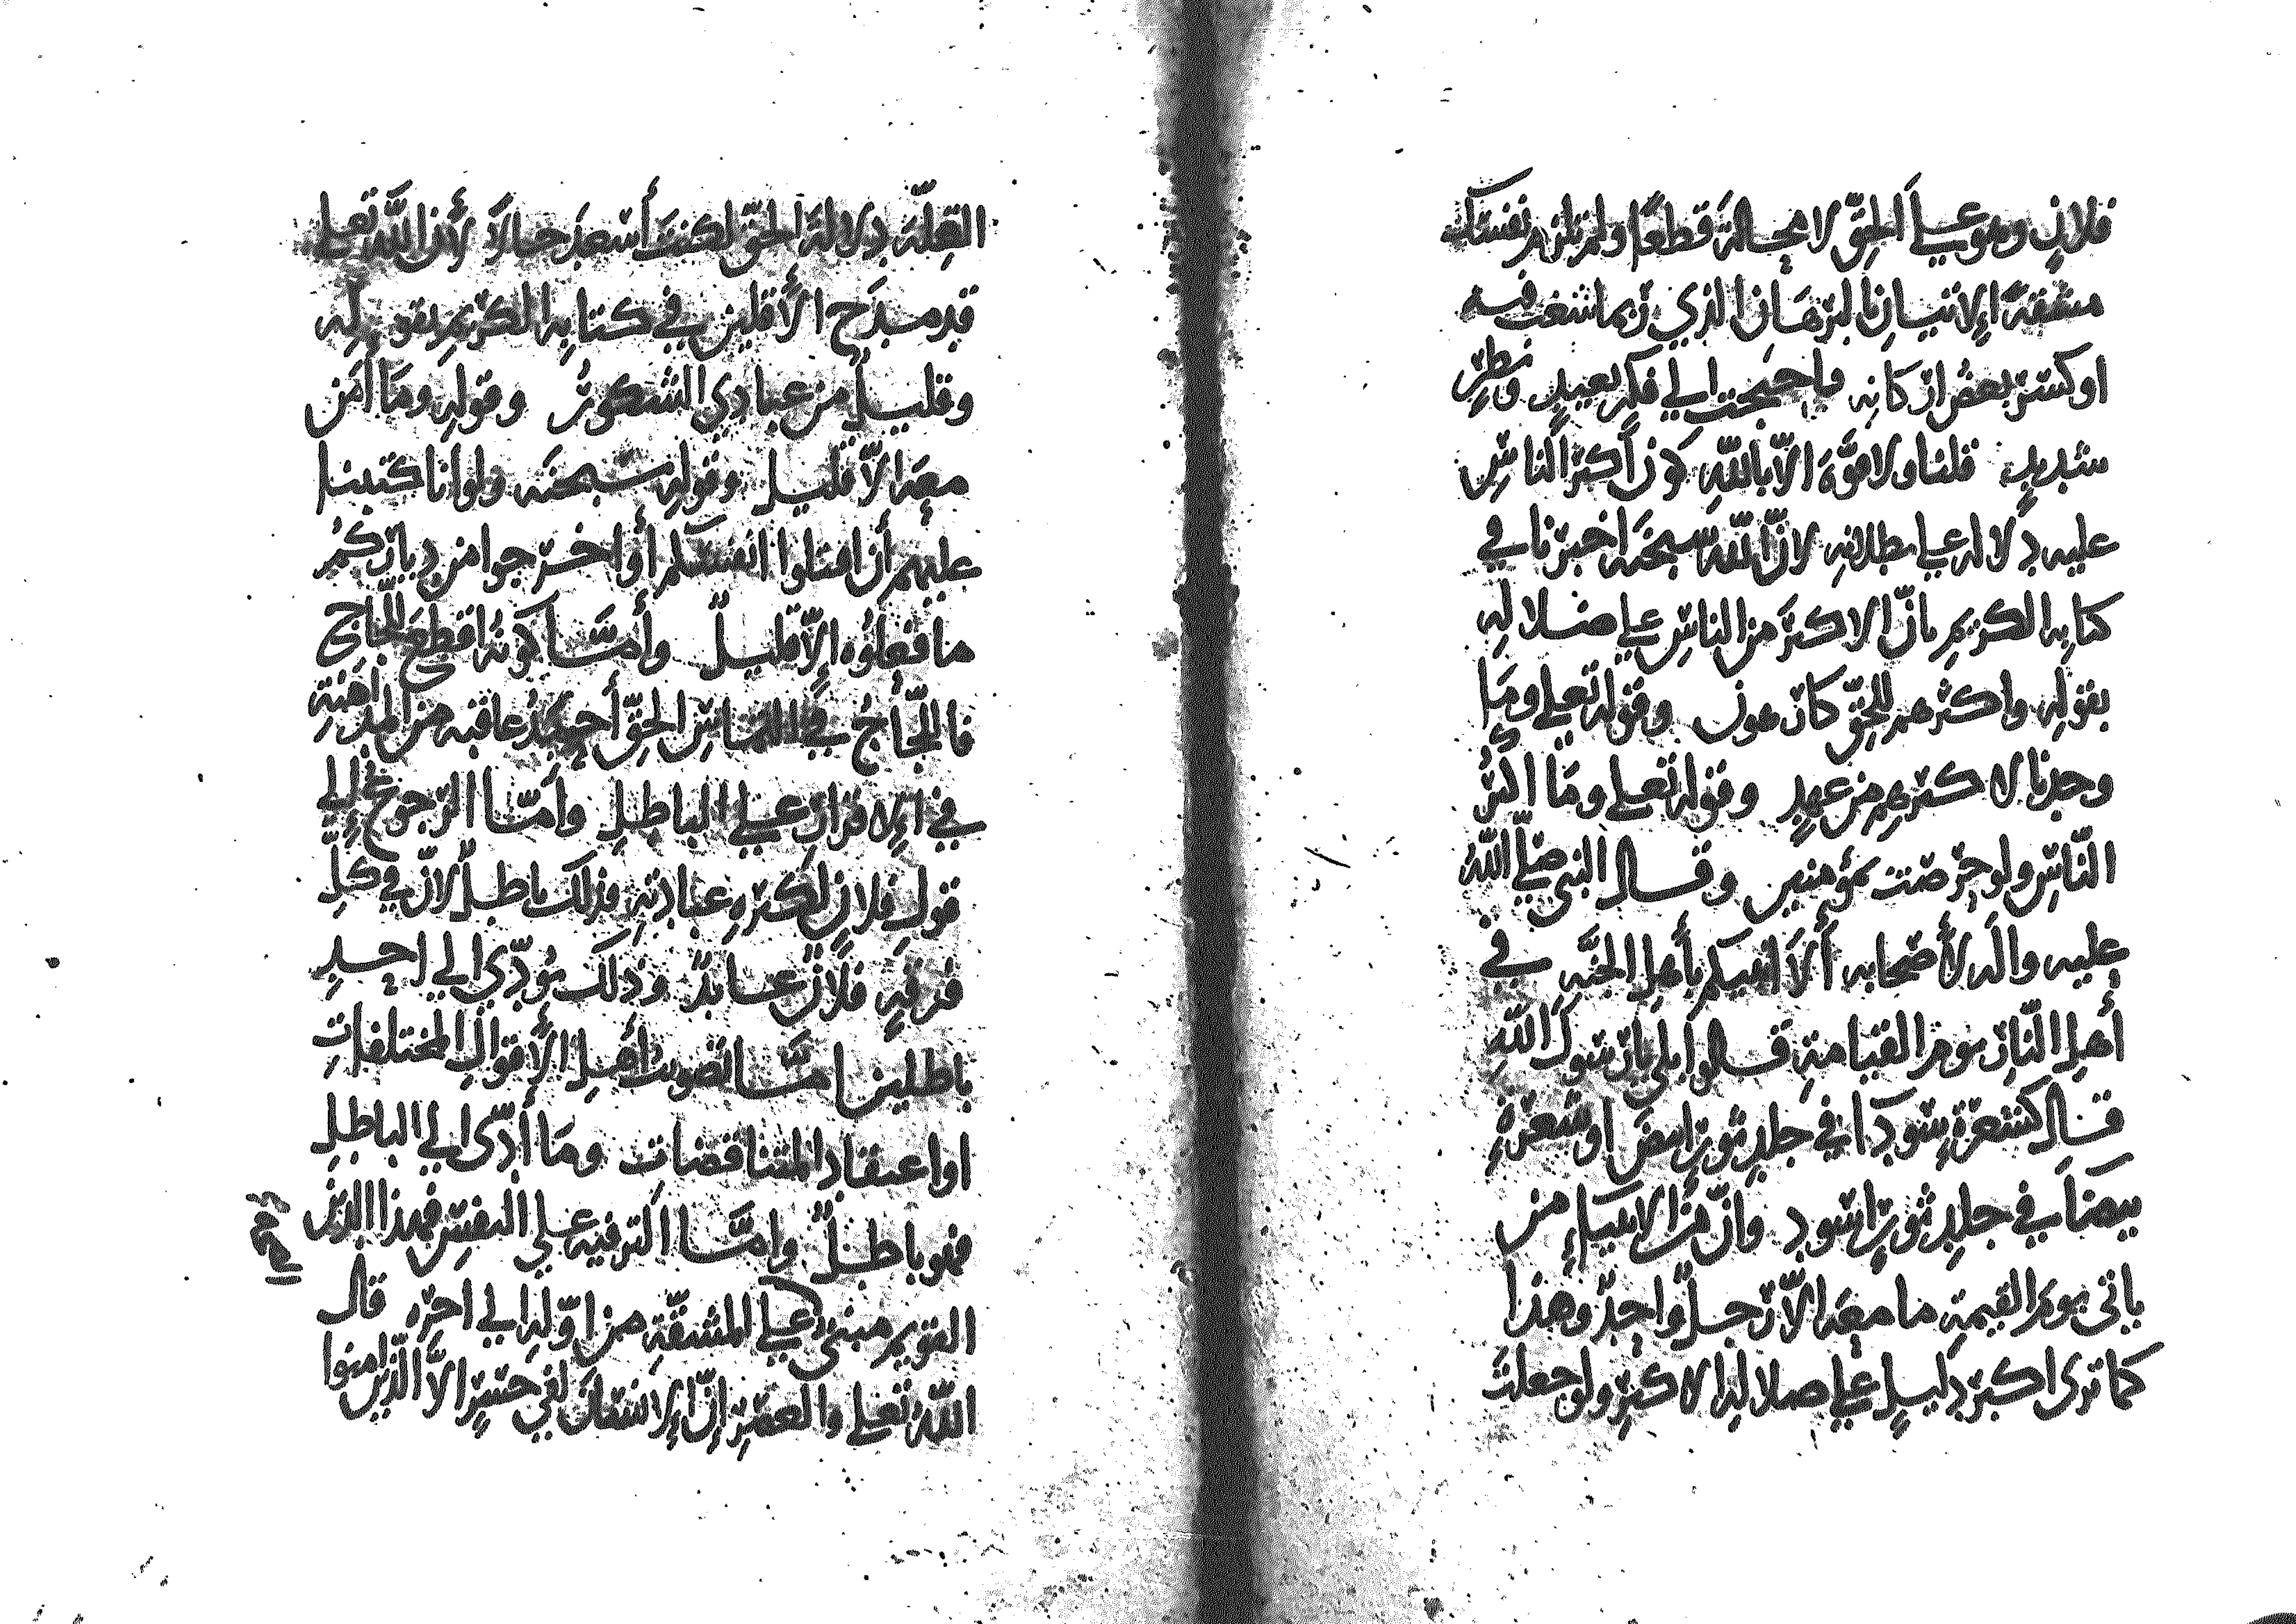 فلانٍ وهو على الحقّ لا محالة قطعًا ولم تلزم نفسك
مشقة الإتيان بالبرهان الذي ربما شغب فيه
او كسر بعض اركانه واحتجت الى فكرٍ بعيدٍ ونظرٍ
شديدٍ قلنا ولا قوّة الّا باللّه كون أكثر الناس
عليه دلالة على بطلانه لانّ اللّه سبحنه اخبرنا في
كتابه الكريم بانّ الاكثر من الناس على ضلاله
بقوله واكثرهم للحقّ كارهون وقوله تعلى وما
وجدنا لاكثرهم من عهدٍ وقوله تعلى وما اكثر
النّاس ولو حرصت بمؤمنين وقال النبي صلّى اللّه
عليه وآله لأصحابه ألا انبيكم بأهل الجنّة في
أهل النّار يوم القيامة قالوا بلى يا رسول اللّه
قال كشعرةٍ سودآ في جلد ثورٍ ابيض او شعرةٍ
بيضآ في جلد ثورٍ اسود وانّ من الانبيآء من
ياتي يوم القيمة ما معه الّا رجلٌ واحدٌ وهذا
كما ترى اكبر دليلٍ على ضلالة الاكثر ولو جعلت
القلّة دلالة الحقّ لكنت أسعد حالًا لأن اللّه تعلى
قد مدح الأقلين في كتابه الكريم بقوله
وقليلٌ من عبادي الشكور وقوله وما آمن
معه الّا قليل وقوله سبحنه ولو انا كتبنا
عليهم أن اقتلوا انفسكم أو اخرجوا من دياركم
ما فعلوه إلّا قليلٌ وأمّا كونه اقطع للّجاج
فاللّجاج في التماس الحقّ أحمد عاقبة من المداهنة
في الإقرار على الباطل وأمّا الرجوع إلى
قول فلانٍ لكثرة عبادته فذلك باطلٌ لأنّ في كلّ
فرقةٍ فلانٌ عابدٌ وذلك يؤدّي الى احد
باطلين امّا تصويب أهل الأقوال المختلفات
او اعتقاد المتناقضات وما أدّى الى الباطل
فهو باطلٌ وامّا الترفيه على النفس فهذا الدين
القويم مبنيٌ على المشقّة من اوّله الى اخره قال
اللّه تعلى والعصر إنّ الإنسان لفي خسر الّا الّذين امنوا